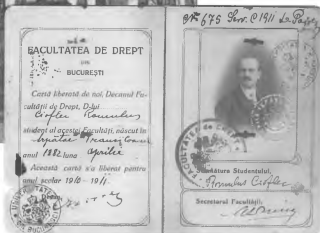 FACULTATEA DE DREPT
DIN
BUCUREȘTI
Cartă liberată de noi, Decanul Fa-
cultății de Drept, D-lui
Cioflec Romulus
student al acestei Facultăți, născut în
anul 1882 luna Aprilie
Această cartă s'a liberat pentru
anul școlar 1910-1911.
No 675 Serv. C 1911
Semnătura Studentului,
Romulus Cioflec
Secretarul Facultății: